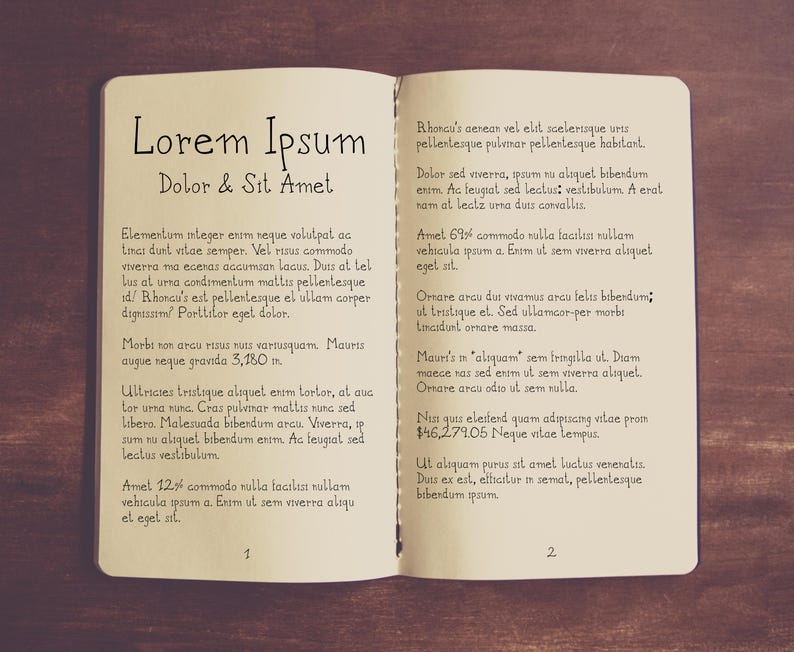 Lorem Ipsum
Dolor & Sit Amet
Elementum integer enim neque volutpat ac
tinci dunt vitae semper. Vel risus commodo
viverra ma ecenas accumsan lacus. Duis at tel
lus at urna condimentum mattis pellentesque
id! Rhoncu's est pellentesque el ullam corper
dignissim? Porttitor eget dolor.
Morbi non arcu risus nuis variusquam. Mauris
augue neque gravida 3,180 in.
Ultricies tristique aliquet enim tortor, at auc
tor urna nunc. Cras pulvinar mattis nunc sed
libero. Malesuada bibendum arcu. Viverra, ip
sum nu aliquet bibendum enim. Ac feugiat sed
lectus vestibulum.
Amet 12% commodo nulla facilisi nullam
vehicula ipsum a. Enim ut sem viverra aliqu
et eget sit.
1
Rhoncu's aenean vel elit scelerisque uris
pellentesque pulvinar pellentesque habitant.
Dolor sed viverra, ipsum nu aliquet bibendum
enim. Ac feugiat sed lectus: vestibulum. A erat
nam at lectz urna duis convallis.
Amet 69% commodo nulla facilisi nullam
vehicula ipsum a. Enim ut sem viverra aliquet
eget sit.
Ornare arcu dui vivamus arcu felis bibendum;
ut tristique et. Sed ullamcor-per morbi
tincidunt ornare massa.
Mauri's in "aliquam" sem fringilla ut. Diam
maece nas sed enim ut sem viverra aliquet.
Ornare arcu odio ut sem nulla.
Nisi quis eleifend quam adipiscing vitae proin
$46,279.05 Neque vitae tempus.
Ut aliquam purus sit amet luctus venenatis.
Duis ex est, efficitur in semat, pellentesque
bibendum ipsum.
2